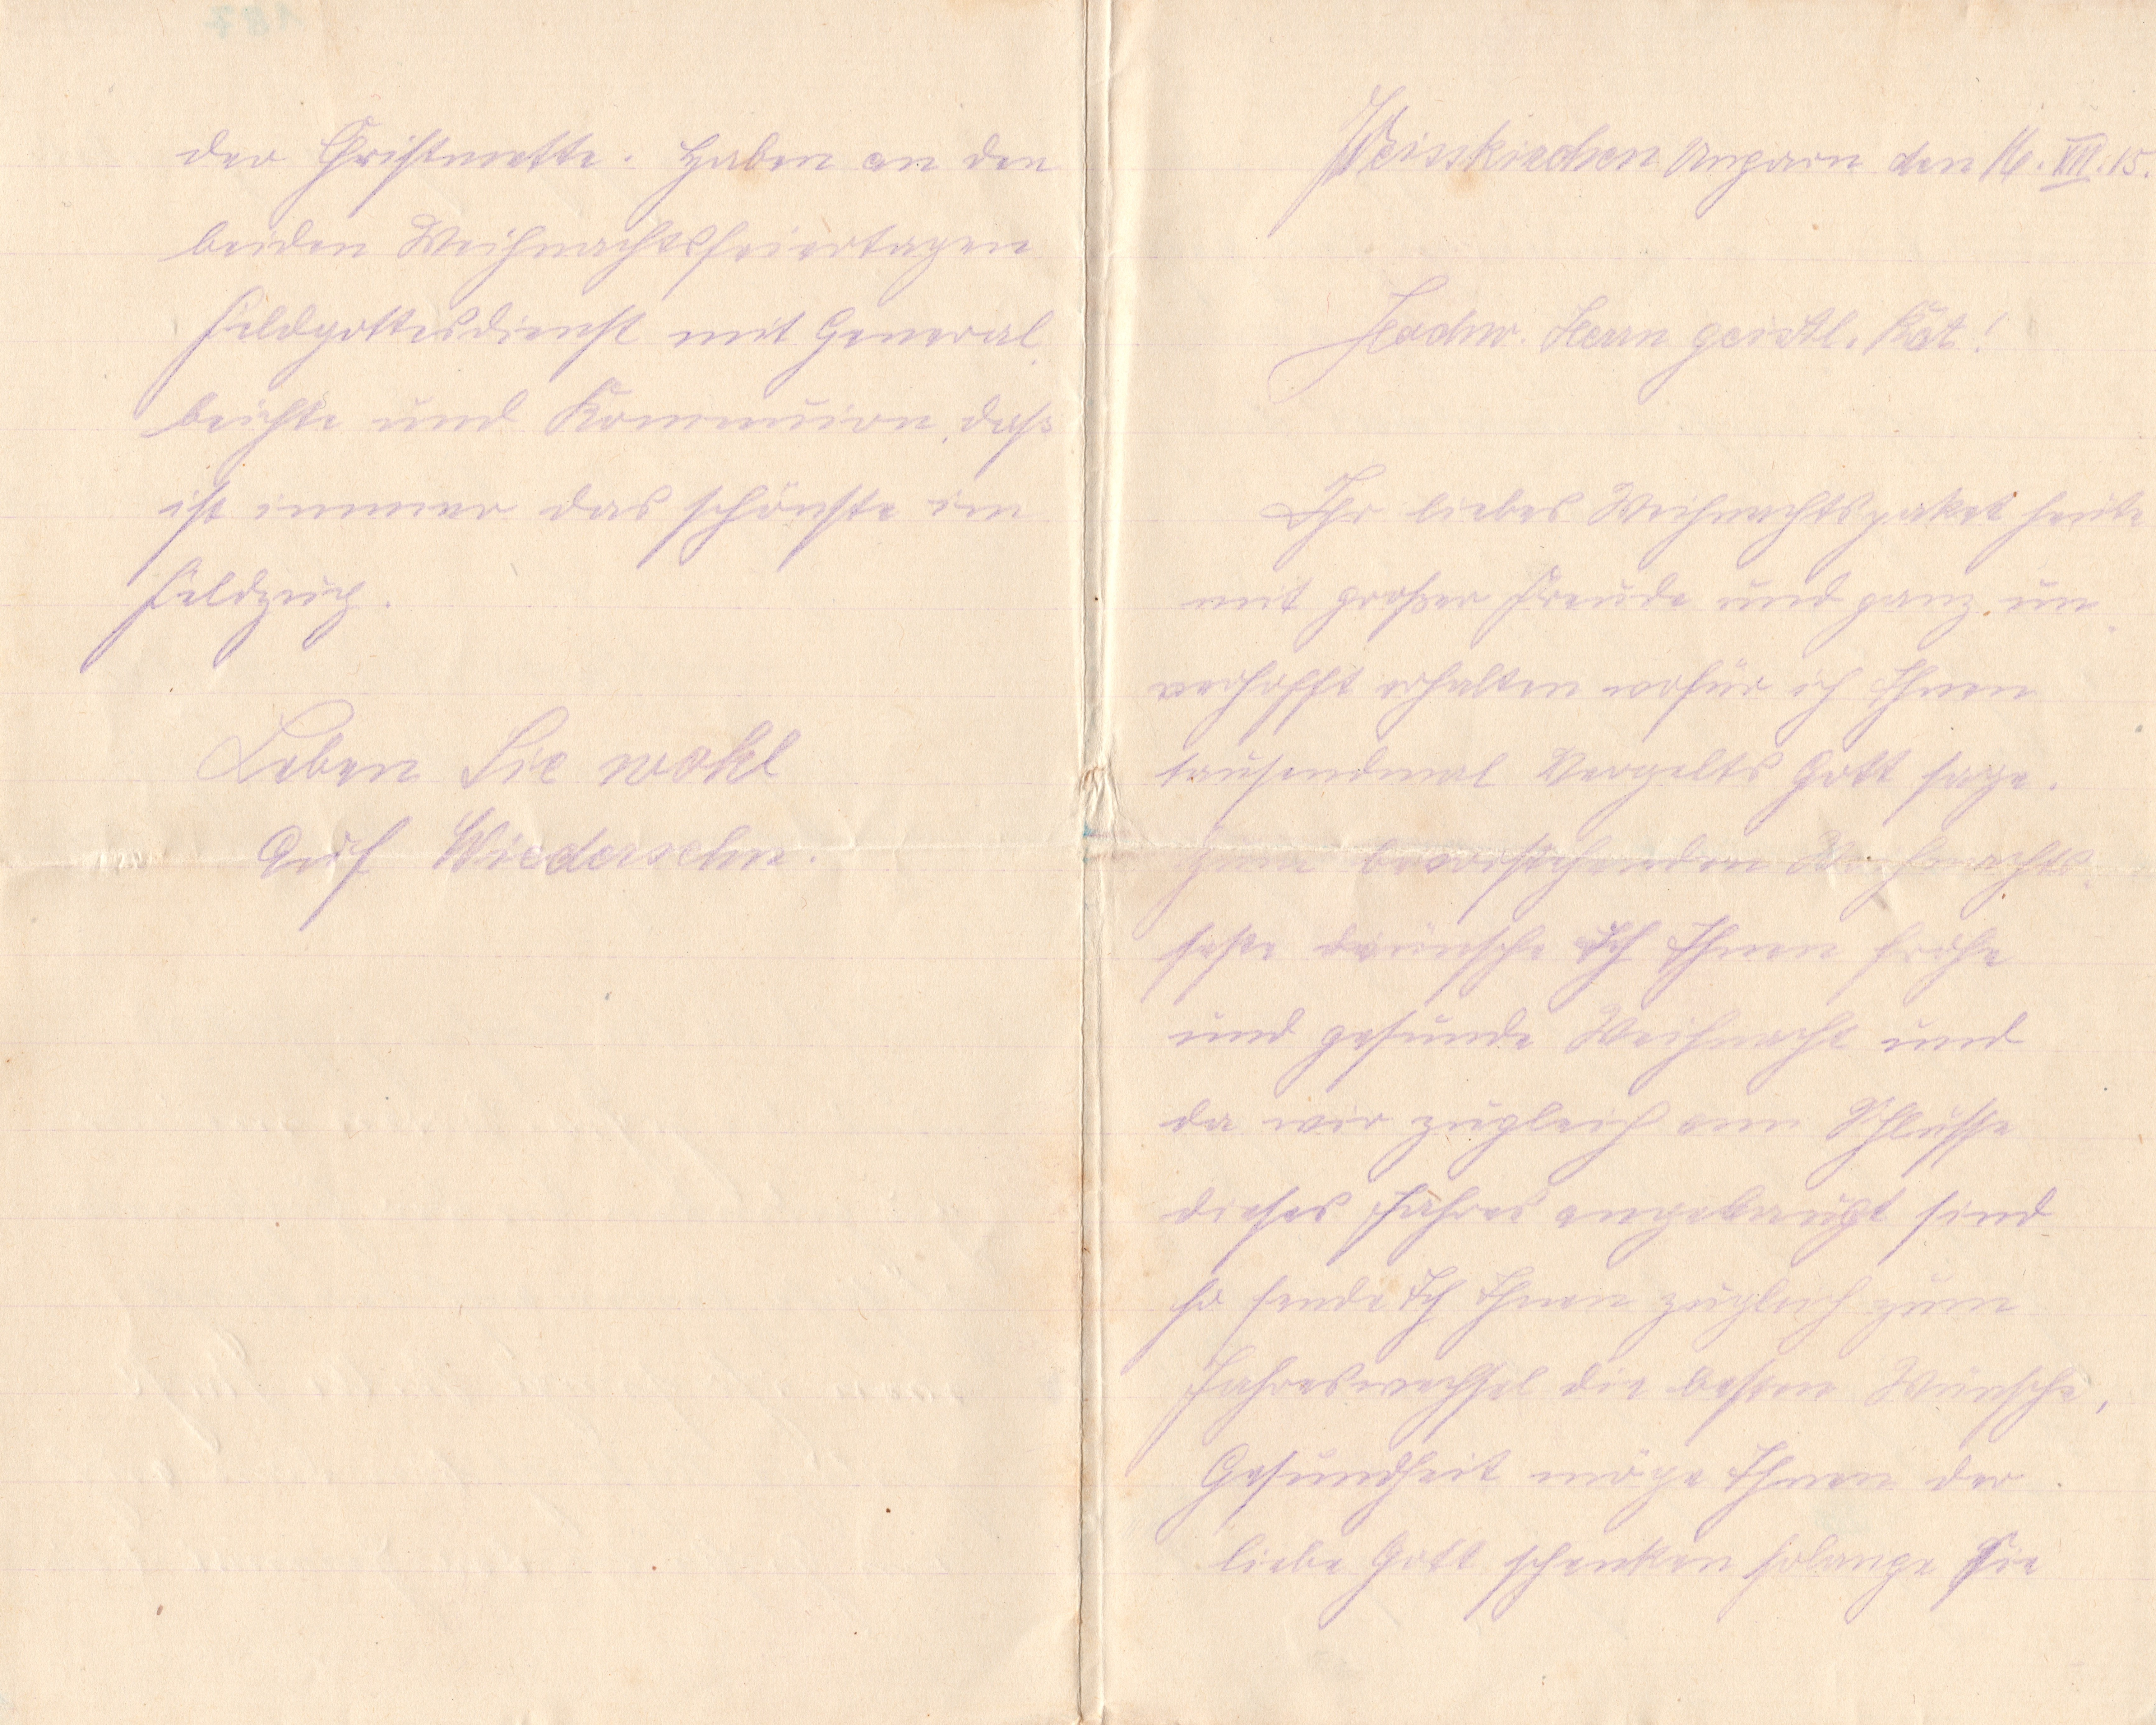 Weisskirchen Ungarn den 16. XII. 15.
Hochw. Herrn geistl. Rat!
Ihr liebes Weihnachtspaket heute
mit großer Freude und ganz un
verhofft erhalten wofür ich Ihnen
tausendmal Vergelts Gott sage.
Zum bevorstehenden Weihnachts
feste wünsche Ich Ihnen frohe
und gesunde Weihnacht und
da wir zugleich am Schlusse
dieses Jahres angelangt sind
so sende Ich Ihnen zugleich zum
Jahreswechsel die besten Wünsche,
Gesundheit möge Ihnen der
liebe Gott schenken solange Sie
der Christmette. Haben an den
beiden Weihnachtsfeiertagen
Feldgottesdienst mit General
beichte und Kommunion, daß
ist immer das schönste im
Feldzug.
Leben Sie wohl
Auf Wiedersehn.